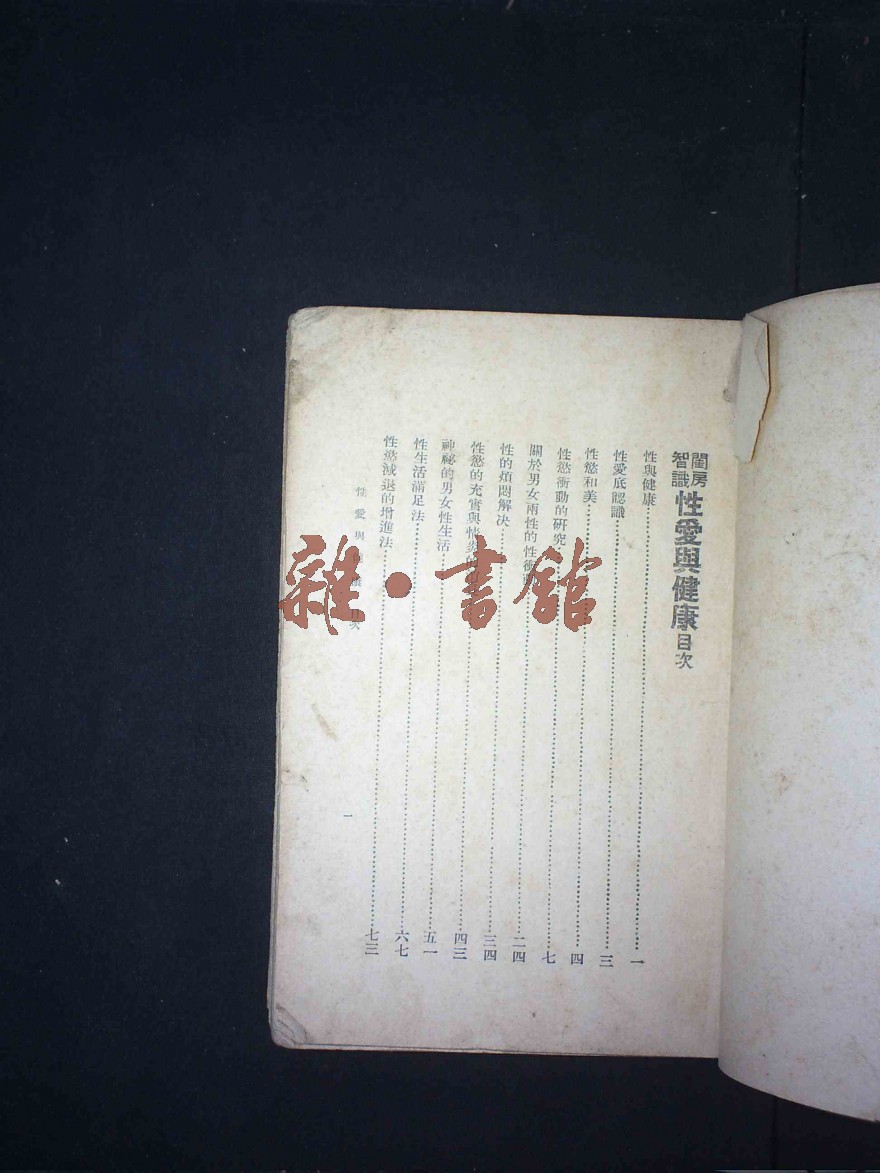 閨房
智識
性愛與健康目次
性與健康 一
性愛底認識 三
性慾和美 四
性慾衝動的研究 七
關於男女兩性的性衝動 二四
性的煩悶解決 三四
性慾的充實與 四三
神祕的男女性生活 五一
性生活滿足法 六七
性慾減退的增進法 七三
性愛與 目次
一
雜·書館